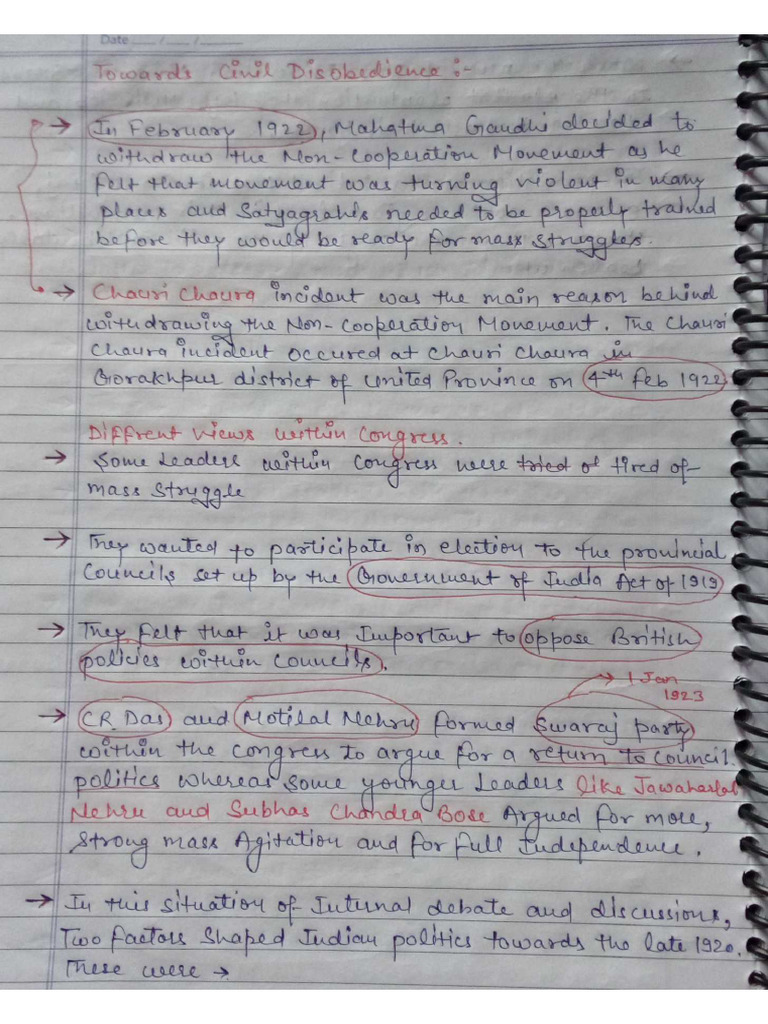 Date
Towards Civil Disobedience :-
→ In February 1922, Mahatma Gandhi decided to
withdraw the Non-Cooperation Movement as he
felt that movement was turning violent in many
places and Satyagrahis needed to be properly trained
before they would be ready for mass struggles.
→ Chauri Chaura incident was the main reason behind
withdrawing the Non-Cooperation Movement. The Chauri
Chaura incident occured at Chauri Chaura in
Gorakhpur district of United Province on 4th Feb 1922
Diffrent views within Congress.
→ Some Leaders within Congress were tried of tired of
mass struggle
→ They wanted to participate in election to the provincial
Councils set up by the Government of India Act of 1919
→ They felt that it was Important to oppose British
policies within Councils.
→ 1 Jan
1923
→ CR Das and Motilal Nehru formed Swaraj party
within the congress to argue for a return to Council
politics whereas some younger Leaders like Jawaharlal
Nehru and Subhas Chandra Bose Argued for more,
strong mass Agitation and for full Independence.
→ In this situation of Internal debate and discussions,
Two factors shaped Indian politics towards the late 1920.
These were →